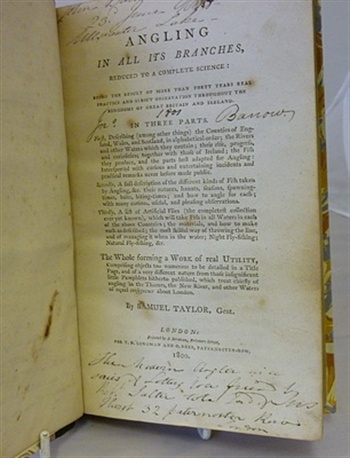 23. June
ANGLING
IN ALL ITS BRANCHES,
REDUCED TO A COMPLETE SCIENCE:
BEING THE RESULT OF MORE THAN FORTY YEARS REAL
PRACTICE AND STRICT OBSERVATION THROUGHOUT THE
KINGDOMS OF GREAT BRITAIN AND IRELAND.
1801
IN THREE PARTS.
Barrow.
First, Describing (among other things) the Counties of Eng-
land, Wales, and Scotland, in alphabetical order; the Rivers
and other Waters which they contain; their rise, progress,
and curiosities; together with those of Ireland; the Fish
they produce, and the parts best adapted for Angling:
Interspersed with curious and entertaining incidents and
practical remarks never before made public.
Secondly, A full description of the different kinds of Fish taken
by Angling, &c. Their natures, haunts, seasons, spawning-
times, baits, biting-times, and how to angle for each;
with many curious, useful, and pleasing observations.
Thirdly, A list of Artificial Flies (the completest collection
ever yet known), which will take Fish in all Waters in each
of the above Countries; the materials, and how to make
each as described; the most skilful way of throwing the line,
and of managing it when in the water; Night Fly-fishing;
Natural Fly-fishing, &c.
The Whole forming a WORK of real UTILITY,
Comprising objects too numerous to be detailed in a Title
Page, and of a very different nature from those insignificant
little Pamphlets hitherto published, which treat chiefly of
angling in the Thames, the New River, and other Waters
of equal importance about London.
By SAMUEL TAYLOR, Gent.
LONDON:
FOR T. N. LONGMAN AND O. REES, PATER-NOSTER-ROW,
1800.
Modern Angler
series of
Salter
32 paternoster Row